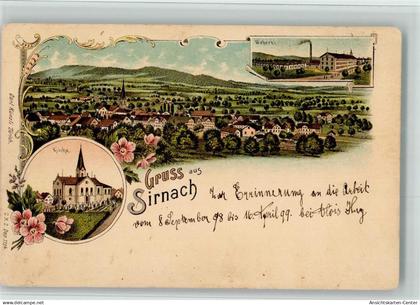 Weberei
Kirche
Gruss aus
Sirnach
Zur Erinnerung an die Arbeit
vom 8 September 98 bis 16 April 99. bei Alois Hug
www.ansichtskarten-center.de